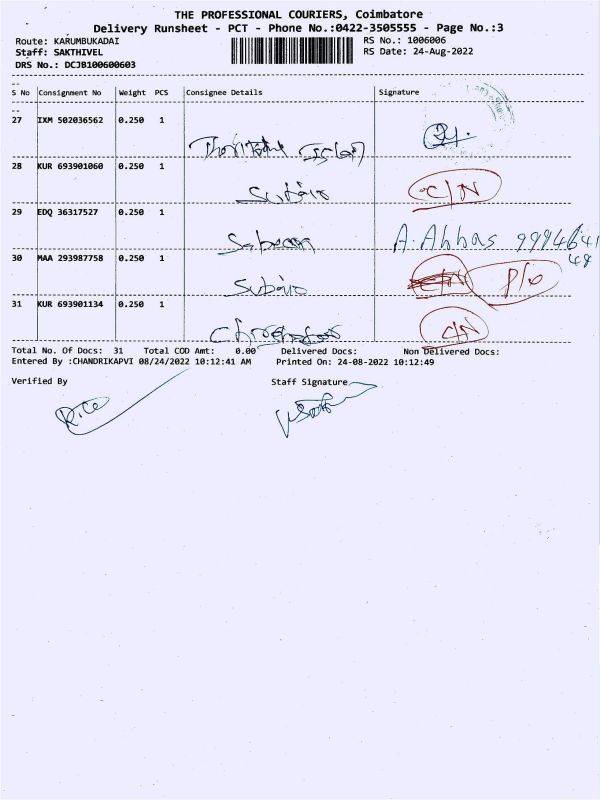 THE PROFESSIONAL COURIERS, Coimbatore
Delivery Runsheet - PCT - Phone No.:0422-3505555 - Page No.:3
Route: KARUMBUKADAI RS No.: 1006006
Staff: SAKTHIVEL RS Date: 24-Aug-2022
DRS No.: DCJB100600603
S No Consignment No Weight PCS Consignee Details Signature
27 IXM 502036562 0.250 1
28 KUR 693901060 0.250 1
C/N
29 EDQ 36317527 0.250 1
A. Abbas
30 MAA 293987758 0.250 1
C/N P/o
31 KUR 693901134 0.250 1
C/N
Total No. Of Docs: 31 Total COD Amt: 0.00 Delivered Docs: Non Delivered Docs:
Entered By :CHANDRIKAPVI 08/24/2022 10:12:41 AM Printed On: 24-08-2022 10:12:49
Verified By Staff Signature